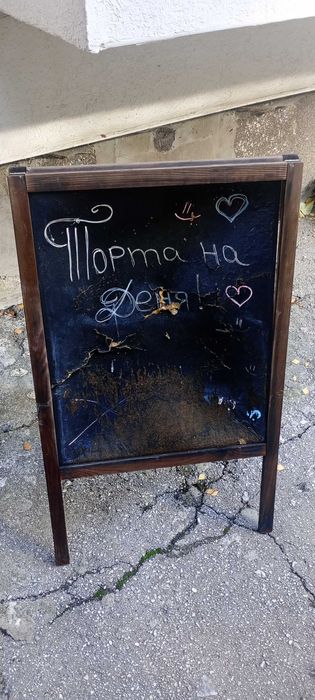 Торта на
Деня!